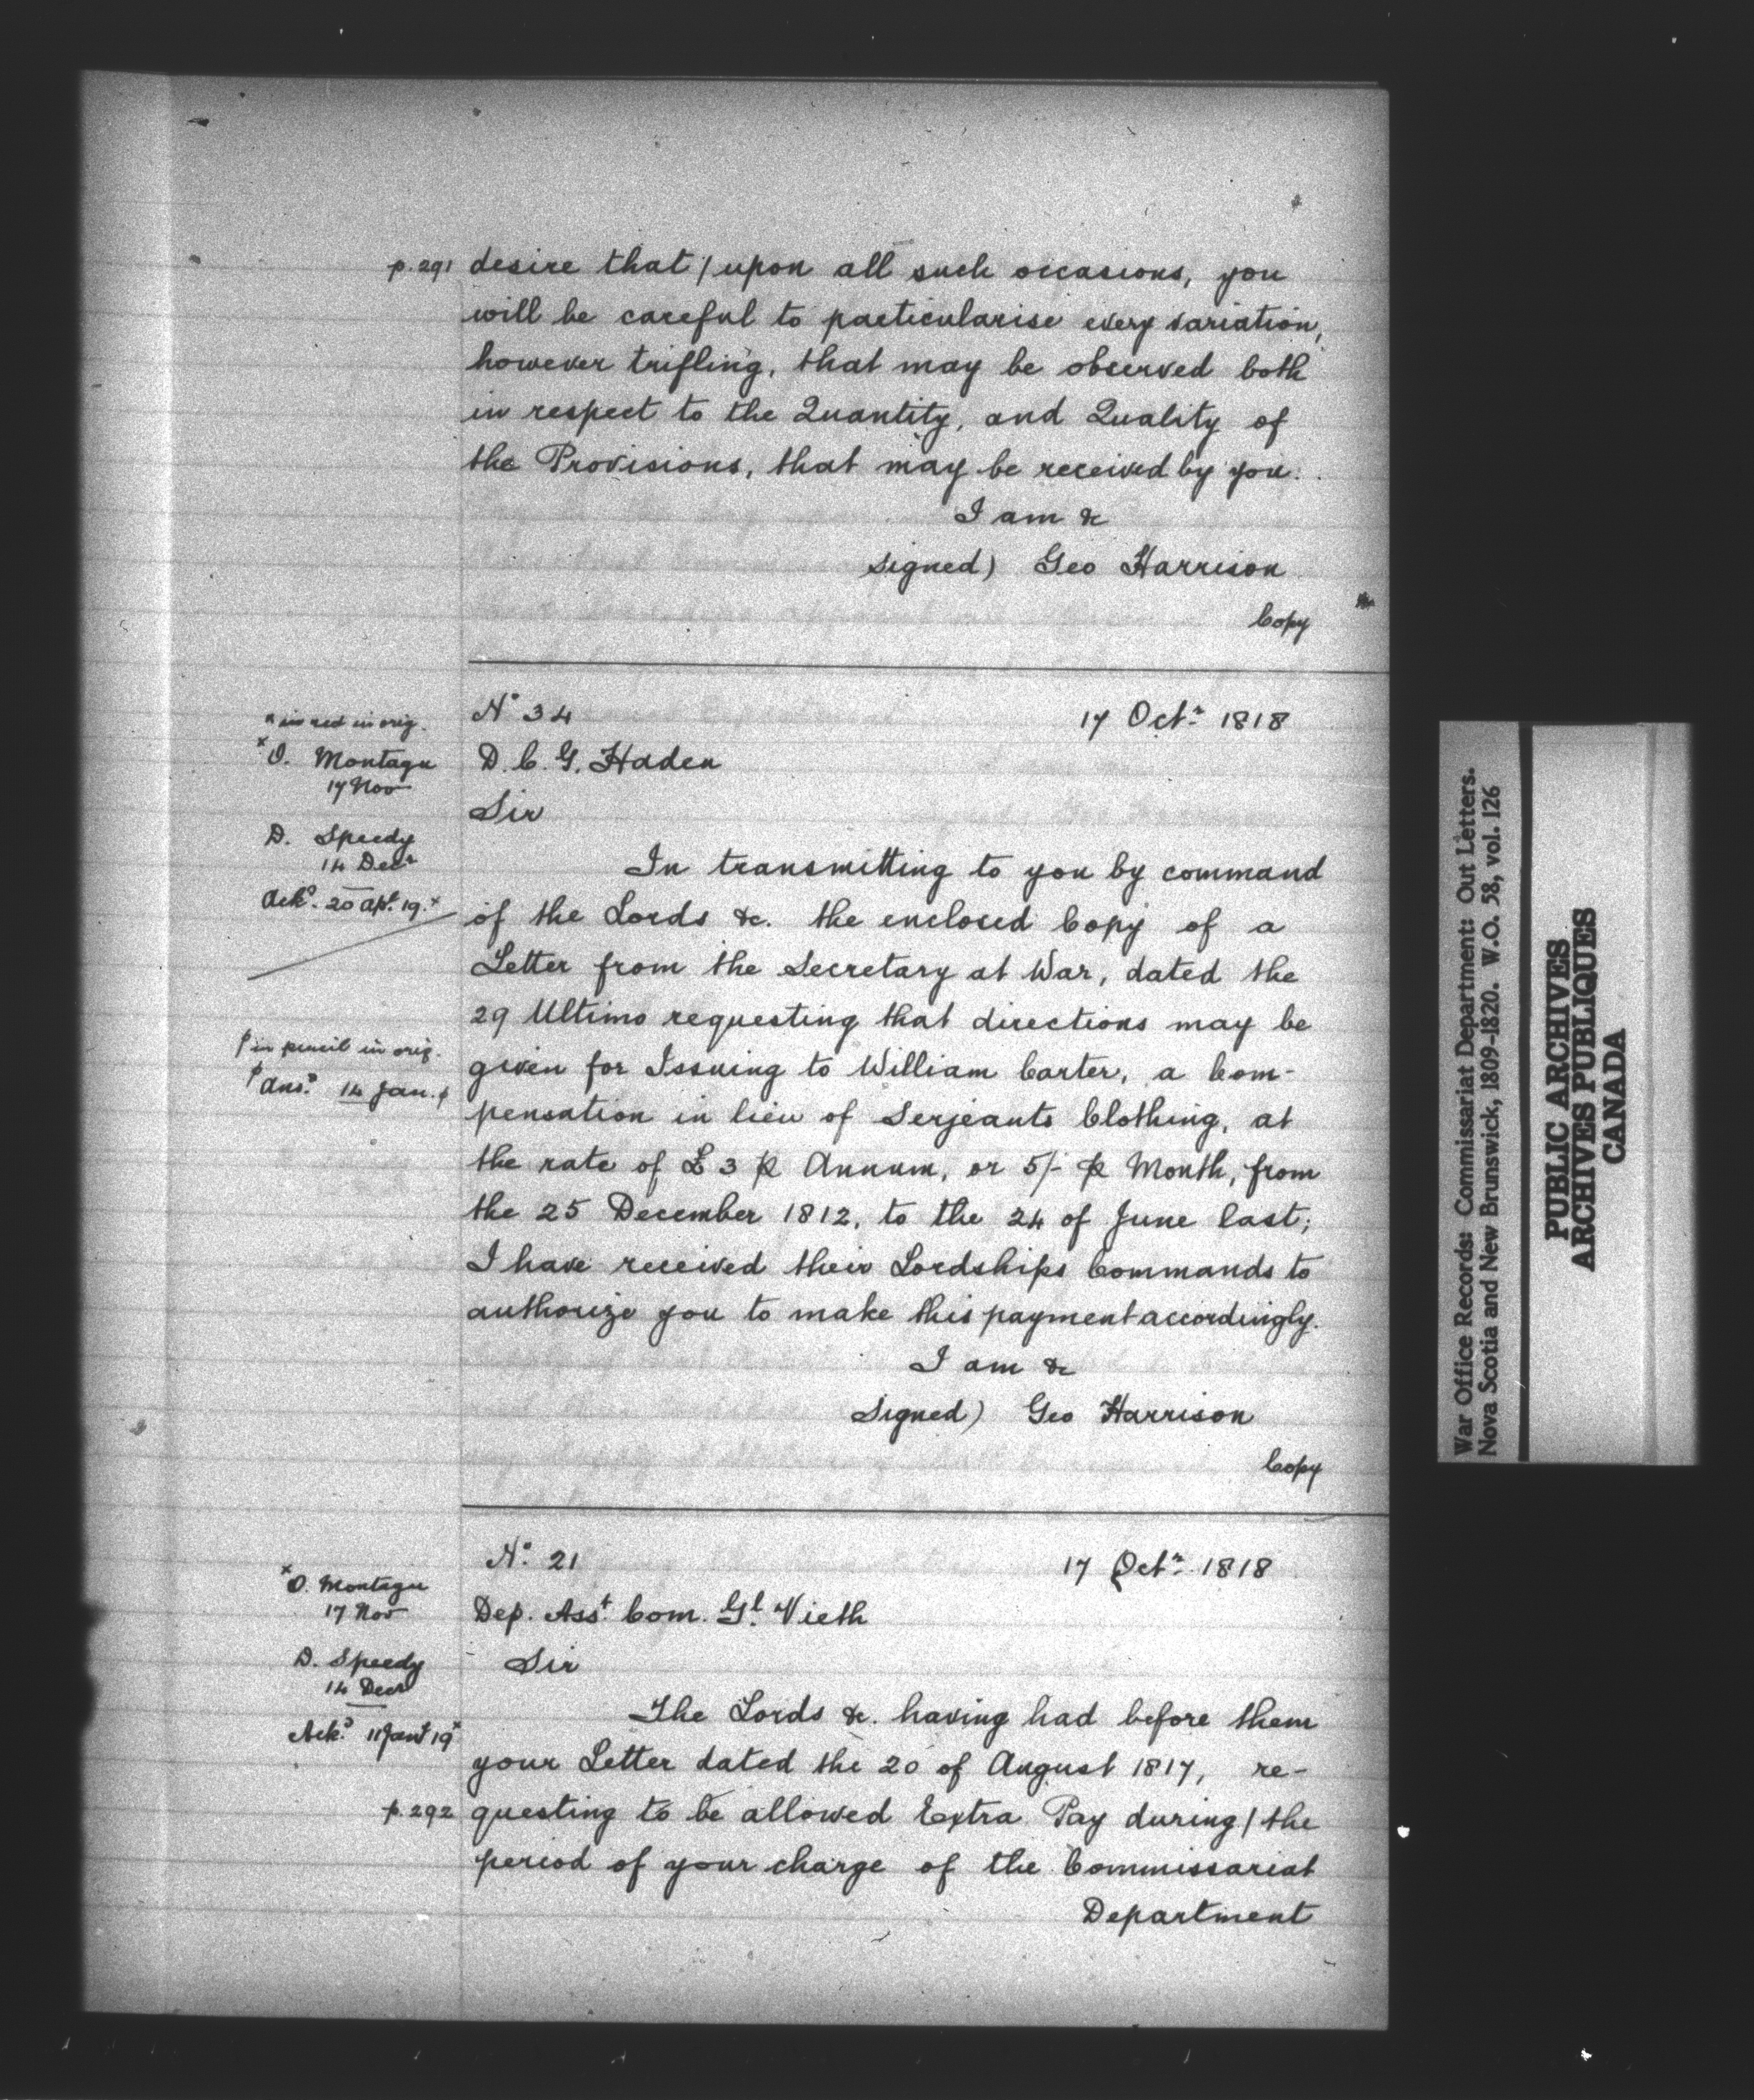 p.291 desire that / upon all such occasions, you
will be careful to particularise every variation,
however trifling, that may be observed both
in respect to the Quantity, and Quality of
the Provisions, that may be received by you.
I am &c
signed) Geo Harrison
Copy
x in red in orig.
x O. Montagu
17 Nov
D. Speedy
14 Decr
Ackd. 20 Apl. 19. x
ϕ in pencil in orig.
ϕ Ansd 14 Jan. ϕ
No 34 17 Octr 1818
D. C. G. Haden
Sir
In transmitting to you by command
of the Lords &c. the enclosed Copy of a
Letter from the Secretary at War, dated the
29 Ultimo requesting that directions may be
given for Issuing to William Carter, a Com-
pensation in lieu of Serjeants Clothing, at
the rate of £3 ⅌ Annum, or 5/- ⅌ Month, from
the 25 December 1812, to the 24 of June last;
I have received their Lordships Commands to
authorize you to make this payment accordingly.
I am &c
Signed) Geo Harrison
Copy
x O. Montagu
17 Nov
D. Speedy
14 Decr
Ackd 11 Jany 19 x
No. 21 17 Octr. 1818
Dep. Asst. Com. Gl. Vieth
Sir
The Lords &c. having had before them
your Letter dated the 20 of August 1817, re-
p.292 questing to be allowed Extra Pay during / the
period of your charge of the Commissariat
Department
War Office Records: Commissariat Department: Out Letters.
Nova Scotia and New Brunswick, 1809-1820. W.O. 58, vol. 126
PUBLIC ARCHIVES
ARCHIVES PUBLIQUES
CANADA